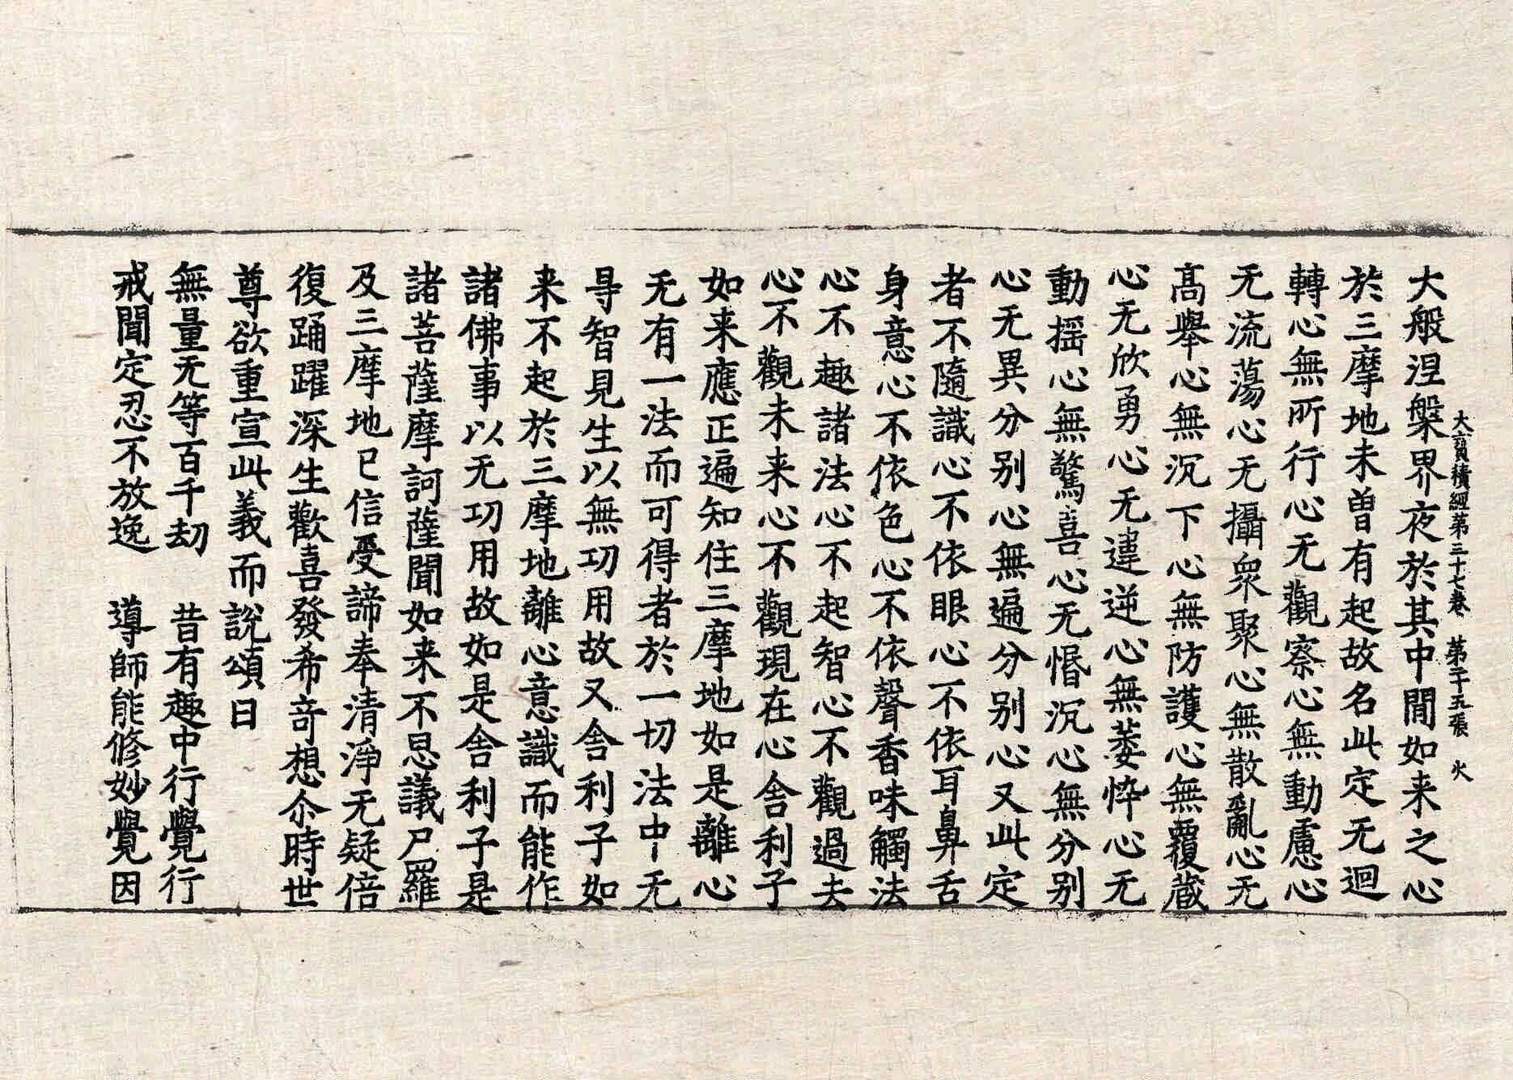 大寶積經第三十七卷　第二十五張　火
大般涅槃界夜於其中間如来之心
於三摩地未曾有起故名此定无迴
轉心無所行心无觀察心無動慮心
无流蕩心无攝衆聚心無散亂心无
高舉心無沉下心無防護心無覆藏
心无欣勇心无違逆心無萎悴心无
動揺心無驚喜心无惛沉心無分别
心无異分别心無遍分别心又此定
者不隨識心不依眼心不依耳鼻舌
身意心不依色心不依聲香味觸法
心不趣諸法心不起智心不觀過去
心不觀未来心不觀現在心舎利子
如来應正遍知住三摩地如是離心
无有一法而可得者於一切法中无
㝵智見生以無功用故又舎利子如
来不起於三摩地離心意識而能作
諸佛事以无功用故如是舎利子是
諸菩薩摩訶薩聞如来不思議尸羅
及三摩地已信受諦奉清淨无疑倍
復踊躍深生歡喜發希竒想尒時世
尊欲重宣此義而說頌曰
無量无等百千劫　昔有趣中行覺行
戒聞定忍不放逸　導師能修妙覺因